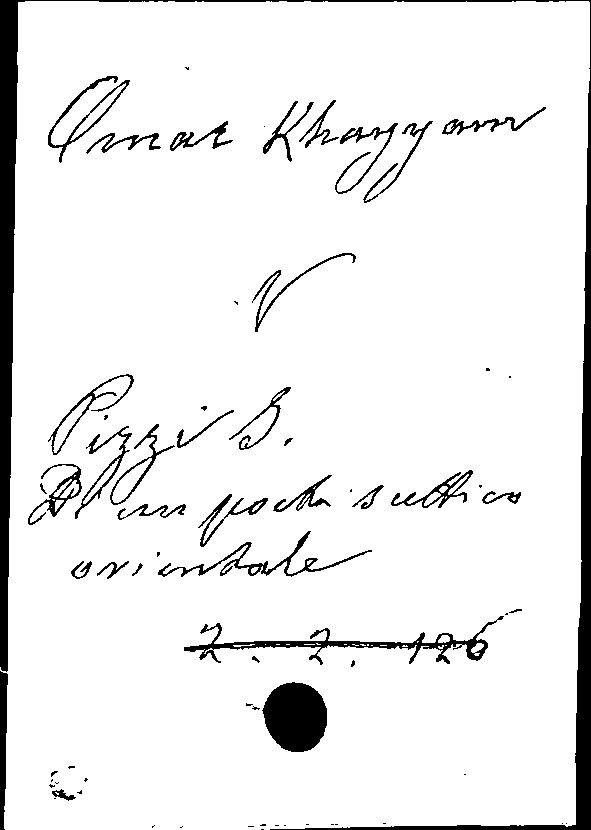 Omar Khayyam
V
Pizzi I.
Di un poeta scettico
orientale
2. 2. 126